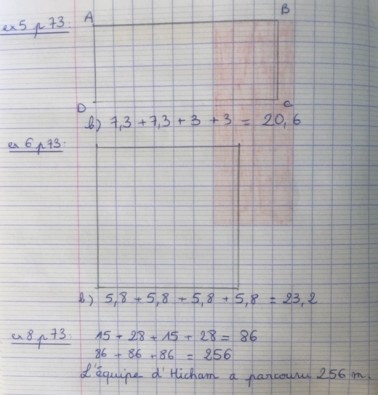 ex 5 p 73: A B
D C
b) 7,3 + 7,3 + 3 + 3 = 20,6
ex 6 p 73:
b) 5,8 + 5,8 + 5,8 + 5,8 = 23,2
ex 8 p 73: 15 + 28 + 15 + 28 = 86
86 + 86 + 86 = 256
L'équipe d'Hicham a parcouru 256 m.